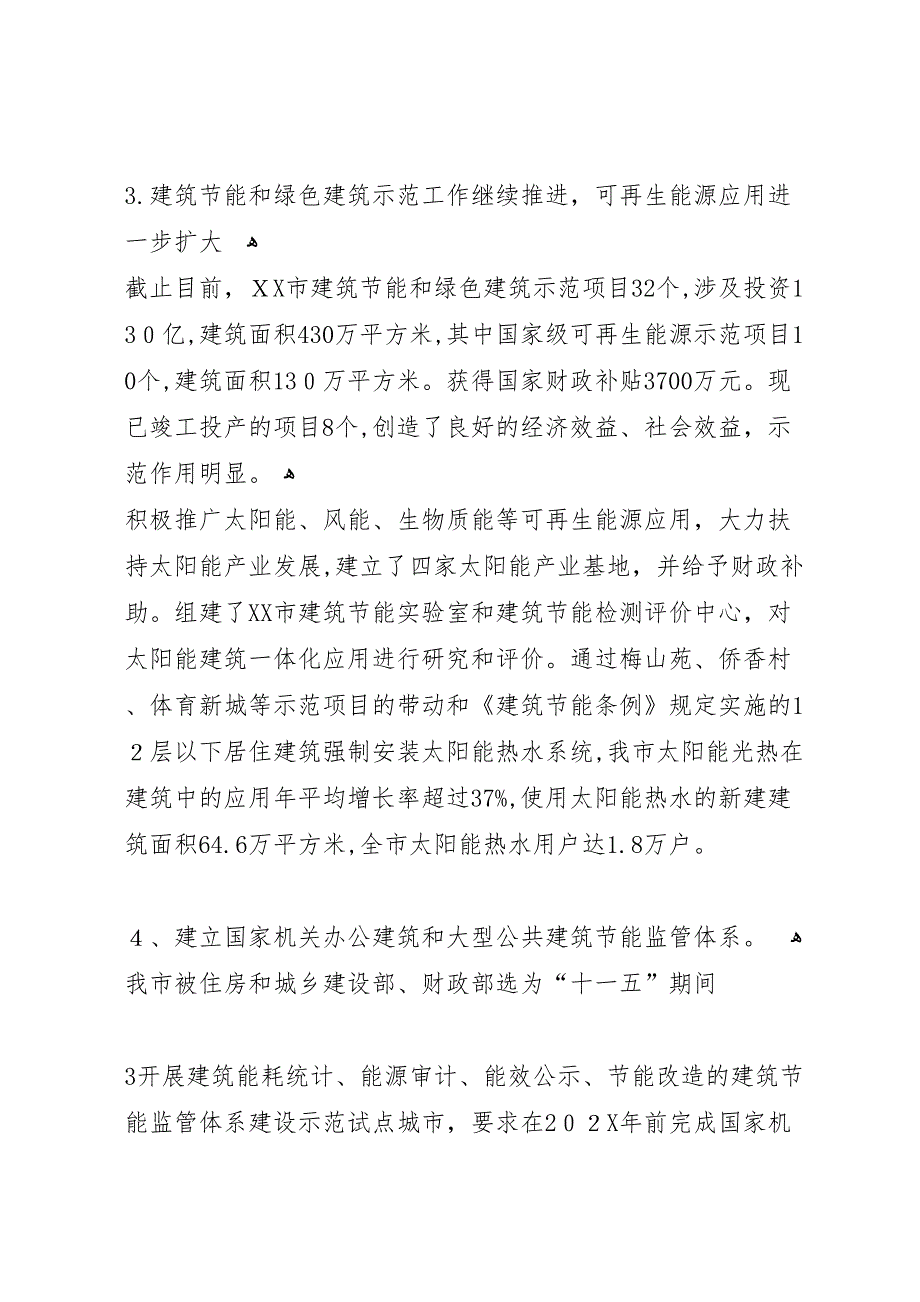 3.建筑节能和绿色建筑示范工作继续推进，可再生能源应用进
一步扩大 ﻫ
截止目前，ＸX市建筑节能和绿色建筑示范项目32个,涉及投资1
3０亿,建筑面积430万平方米,其中国家级可再生能源示范项目1
0个,建筑面积13０万平方米。获得国家财政补贴3700万元。现
已竣工投产的项目8个,创造了良好的经济效益、社会效益，示
范作用明显。 ﻫ
积极推广太阳能、风能、生物质能等可再生能源应用，大力扶
持太阳能产业发展,建立了四家太阳能产业基地，并给予财政补
助。组建了XX市建筑节能实验室和建筑节能检测评价中心，对
太阳能建筑一体化应用进行研究和评价。通过梅山苑、侨香村
、体育新城等示范项目的带动和《建筑节能条例》规定实施的1
２层以下居住建筑强制安装太阳能热水系统,我市太阳能光热在
建筑中的应用年平均增长率超过37%,使用太阳能热水的新建建
筑面积64.6万平方米,全市太阳能热水用户达1.8万户。
４、建立国家机关办公建筑和大型公共建筑节能监管体系。 ﻫ
我市被住房和城乡建设部、财政部选为“十一五”期间
3开展建筑能耗统计、能源审计、能效公示、节能改造的建筑节
能监管体系建设示范试点城市，要求在2０２X年前完成国家机